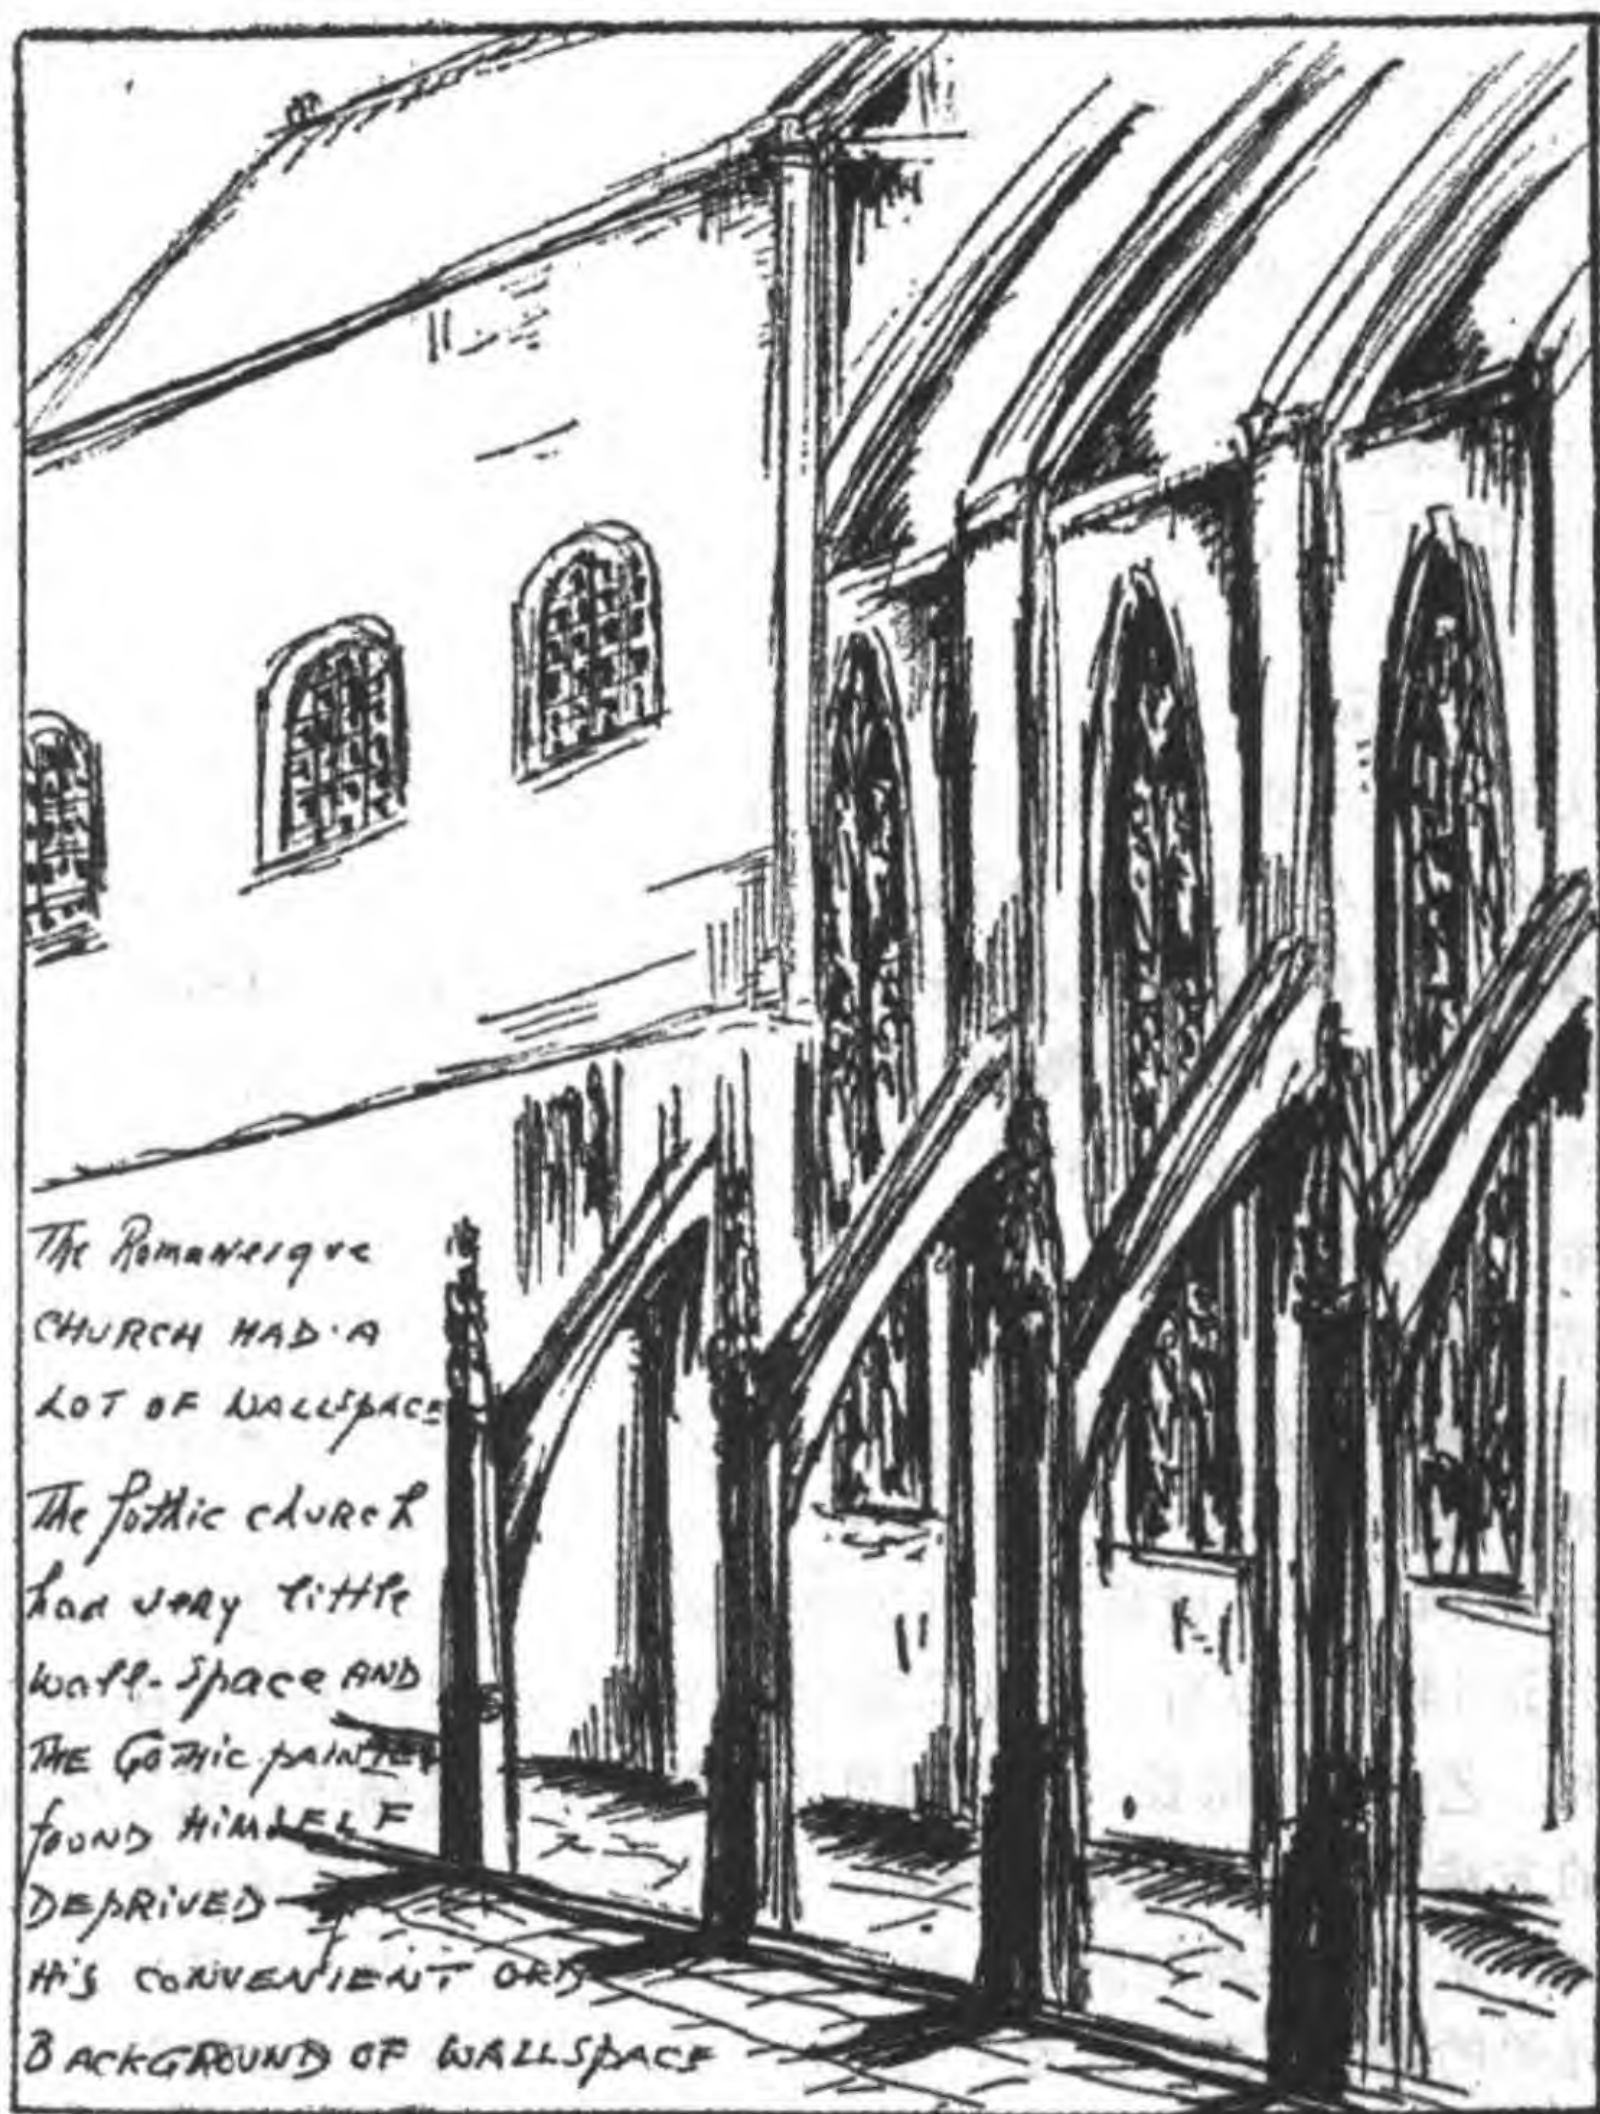 The Romanesque
CHURCH HAD A
LOT OF WALLSPACE
The Gothic church
had very little
wall-space AND
THE Gothic PAINTER
FOUND HIMSELF
DEPRIVED
HIS CONVENIENT OLD
BACKGROUND OF WALLSPACE